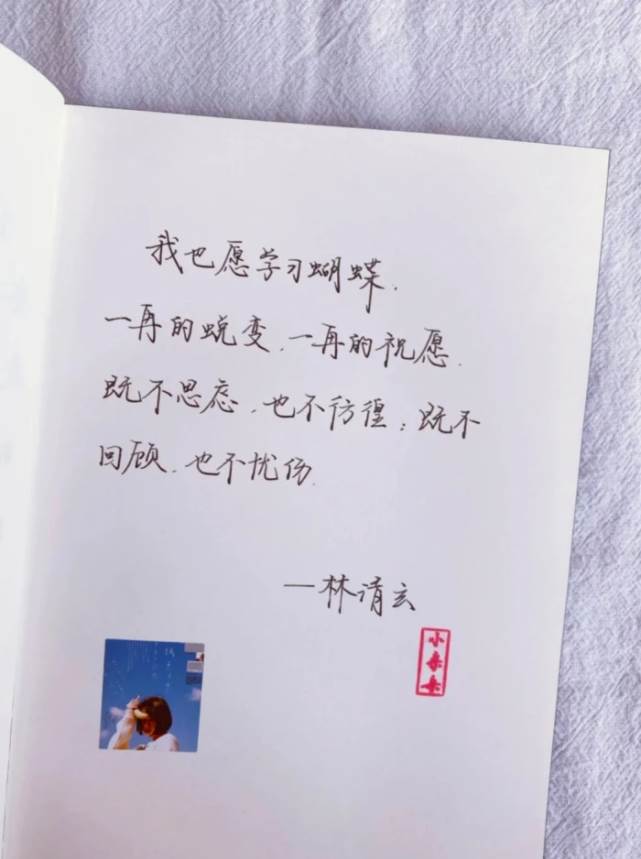 我也愿学习蝴蝶.
一再的蜕变.一再的祝愿.
既不思虑.也不彷徨;既不
回顾.也不忧伤.
—林清玄